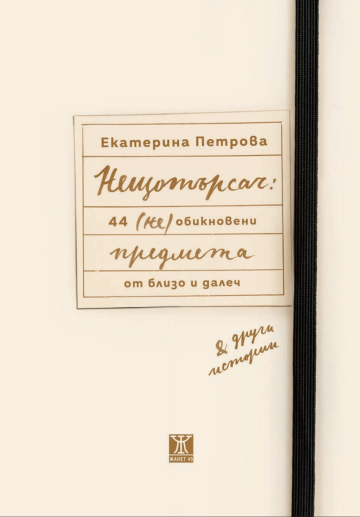 Екатерина Петрова
Нещотърсач:
44 (не) обикновени
предмета
от близо и далеч
& други
истории
Ж
ЖАНЕТ 45